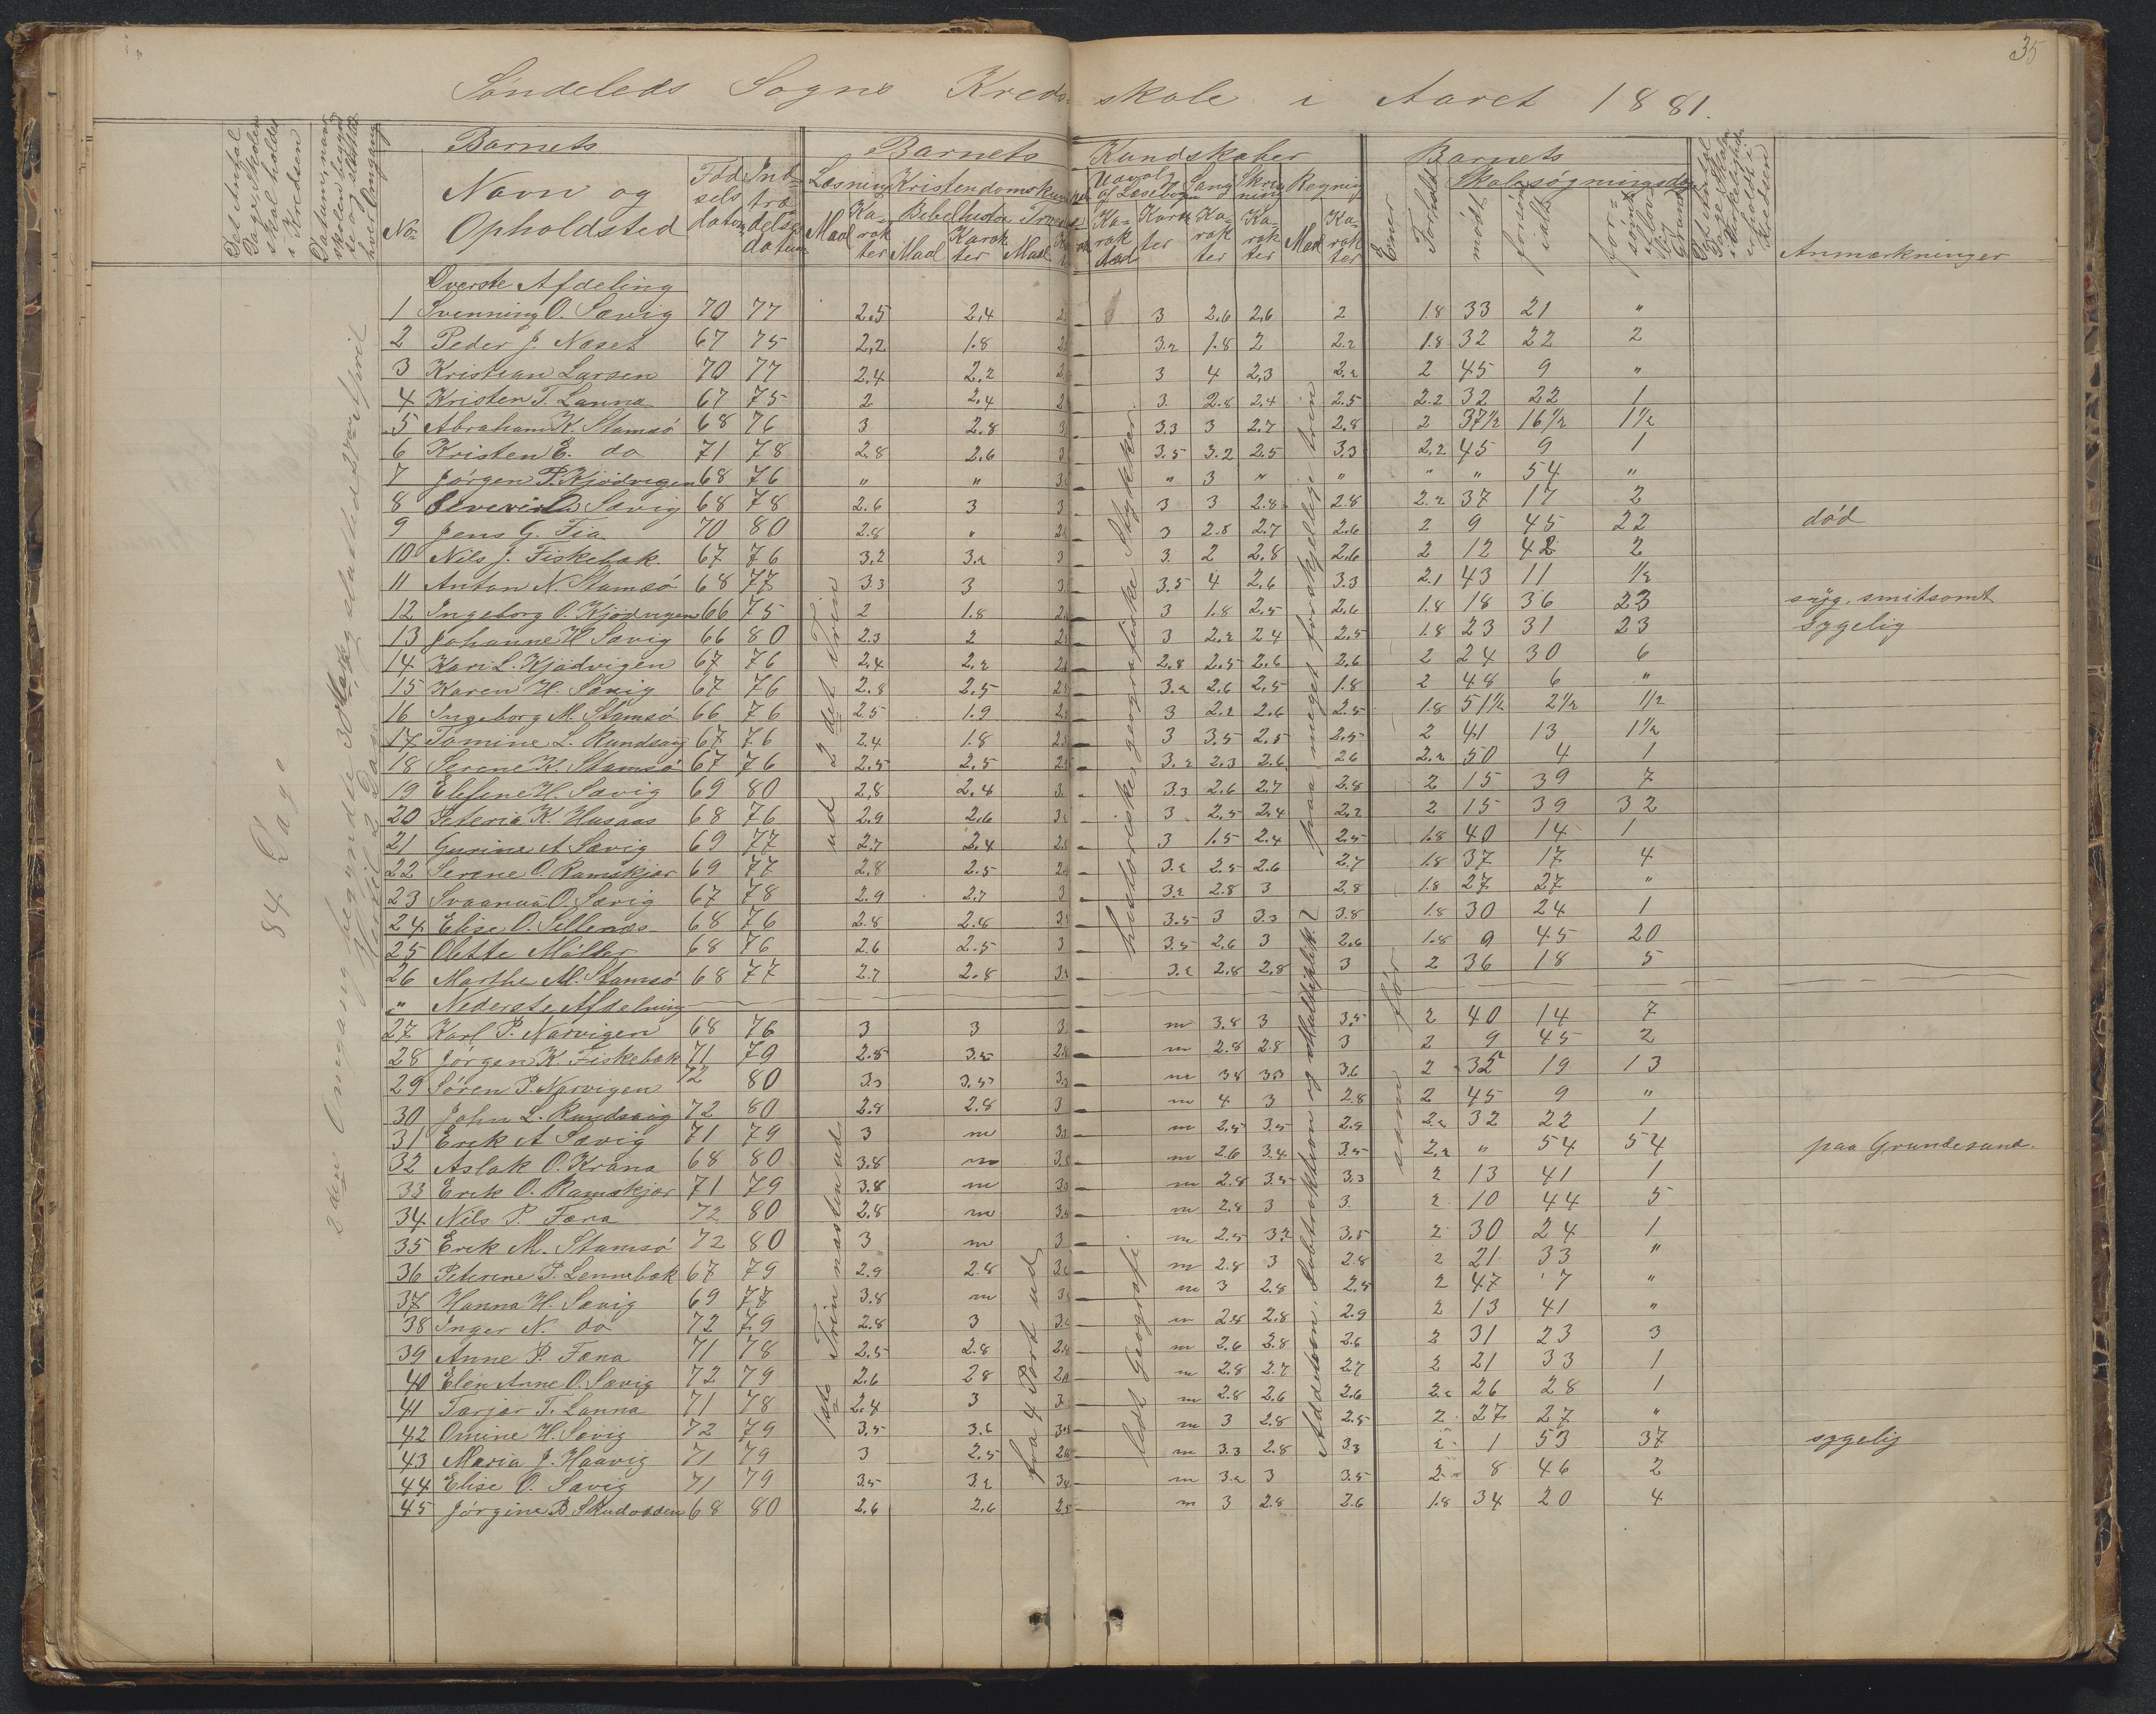 35
Söndeleds Sogns Kredsskole i Aaret 1881.
Det Antal Dage Skolen skal holdes i Kredsen
Datum, naar skolen begyndte og sluttede hver Omgang
No.
Barnets
Navn og Opholdsted
Födselsdatum
Indtrædelsesdatum
Barnets Kundskaber
Læsning
Maal Karakter
Kristendomskundskab
Bibelhistorie
Maal Karakter
Maal
Udvalg af Læsebogen
Sang
Skrivning
Regning
Karakter Karakter Karakter Maal Karakter
Evner
Forhold
Barnets
Skolesøgningsdage
mödt
forsömt ialt
forsömt af lovl. Grund
Det Antal Dage Skolen i Virkeligheden er holdt i Kredsen
Anmærkninger
84 Dage
2den Omgang begyndte 30 Marts sluttede 2den April
Hertil 2 Dage
ud 2det Trin
1ste Trin næsten ud
fra 4 Part ud
historiske, geografiske Stykker
lidt Geografi
paa meget forskjellige trin
Addition, Subtraktion og Multiplik.
som før
Överste Afdeling
1 Svenning O. Sævig 70 77 2,5 2,4 3 2,6 2,6 2 1.8 33 21 "
2 Peder J. Næset 67 75 2,2 1.8 3.2 1.8 2 2.2 1.8 32 22 2
3 Kristian Larsen 70 77 2.4 2,2 3 4 2,3 2.2 2 45 9 "
4 Kristen T. Lanna 67 75 2 2,4 3 2.8 2.4 2.5 2.2 32 22 1
5 Abraham K. Stamsö 68 76 3 2.8 3.3 3 2.7 2,8 2 37½ 16½ 1½
6 Kristen E. do 71 78 2.8 2.6 3.5 3.2 2.5 3.3 2,2 45 9 1
7 Jörgen P. Kjödvigen 68 76 " " " 3 " " " " 54 "
8 Sævig 68 78 2.6 3 3 3 2.8 2.8 2.2 37 17 2
9 Jens G. Fia 70 80 2.8 " 3 2.8 2.7 2.6 2 9 45 22 död
10 Nils J. Fiskebæk. 67 76 3,2 3.2 3 2 2.8 2.6 2 12 42 2
11 Anton N. Stamsö 68 77 3.3 3 3.5 4 2.6 3.3 2.1 43 11 ½
12 Ingeborg O. Kjödvigen 66 75 2 1.8 3 1.8 2.5 2.6 1.8 18 36 23 syg. smitsomt
13 Johanne H Sævig 66 80 2.3 2 3 2.2 2.4 2.5 1.8 23 31 23 sygelig
14 Kari L. Kjödvigen 67 76 2.4 2.2 2.8 2.5 2.6 2.6 2 24 30 6
15 Karen H. Sævig 67 76 2.8 2.5 3.2 2.6 2,5 1.8 2 48 6 "
16 Ingeborg M. Stamsö 66 76 2.5 1.9 3 2.2 2.6 2.5 1.8 51½ 2½ ½
17 Tomine L. Rundsvig 67 76 2.4 1.8 3 3.5 2.5 2.5 2 41 13 1½
18 Serene K. Stamsö 67 76 2.5 2.5 3.2 2.3 2.6 26 2.2 50 4 1
19 Elefine H. Sævig 69 80 2,8 2.4 3.3 2.6 2.7 2.8 2 15 39 7
20 Peteria K. Husaas 68 76 2.9 2.6 3 2.5 2.4 2.2 2 15 39 32
21 Gurine A Sævig 69 77 2.7 2.4 3 1.5 2.4 2.5 1.8 40 14 1
22 Serene O. Ramskjær 69 77 2.8 2.5 3.2 2.5 2.6 2.7 1.8 37 17 4
23 Svaanua O. Sævig 67 78 2.9 2.7 3.2 2.8 3 2,8 1.8 27 27 "
24 Elise O. Sellenæs 68 76 2.8 2.8 3.5 3 3.3 3.8 1.8 30 24 1
25 Olette Möller 68 76 2.6 2.5 3.5 2.6 3 2.6 1.8 9 45 20
26 Marthe M. Stamsö 68 77 2.7 2.8 3.2 2.8 2.8 3 2 36 18 5
" Nederste Afdelning
27 Karl P. Narvigen 68 76 3 3 m 3.8 3 3.5 2 40 14 7
28 Jörgen K. Fiskebæk 71 79 2.8 3.5 m 2.8 2.8 3 2 9 45 2
29 Sören P. Narvigen 72 80 3.3 3.5 m 3.8 3.3 3.6 2 35 19 13
30 John L. Rundsvig 72 80 2.8 2.8 m 4 3 2.8 2 45 9 "
31 Erik A Sævig 71 79 3 m m 2.5 3.5 2.9 2.2 32 22 1
32 Aslak O. Krana 68 80 3.8 m m 2.6 3.4 3.5 2.2 " 54 54 paa Grundesund.
33 Erik O. Ramskjær 71 79 3.8 m m 2.8 3.5 3.3 2 13 41 1
34 Nils P. Fæna 72 80 2.8 m m 2.8 3 3. 2 10 44 5
35 Erik M. Stamsö 72 80 3 m m 2.5 3.2 3.5 2 30 24 1
36 Peterene P. Lennebæk 67 79 2.9 2.8 m 2.8 3 2.8 2 21 33 "
37 Hanna H. Sævig 69 77 3.8 m m 3 2.8 2.5 2 47 7 "
38 Inger N. do 72 79 2.8 3 m 2.8 2.8 2.9 2 13 41 "
39 Anne P. Fæna 71 78 2.5 2.8 m 2.6 2.8 2.6 2 31 23 3
40 Elen Anne O. Sævig 72 79 2.6 28 m 2.8 2.7 2.7 2 21 33 1
41 Tarjer T. Lanna 71 78 2.4 3 m 2.8 2.6 2.6 2.2 26 28 1
42 Omine H. Sævig 72 79 3.5 3.6 m 3 2.8 2.5 2 27 27 "
43 Maria J. Haavig 71 79 3 2.5 m 3.3 2.8 3.3 2 1 53 37 sygelig
44 Elise O. Sævig 71 79 3.5 3.2 m 3.2 3 3.5 2 8 46 2
45 Jörgine B Skudodden 68 80 2.6 2.6 m 3 2.8 2.6 1.8 34 20 4